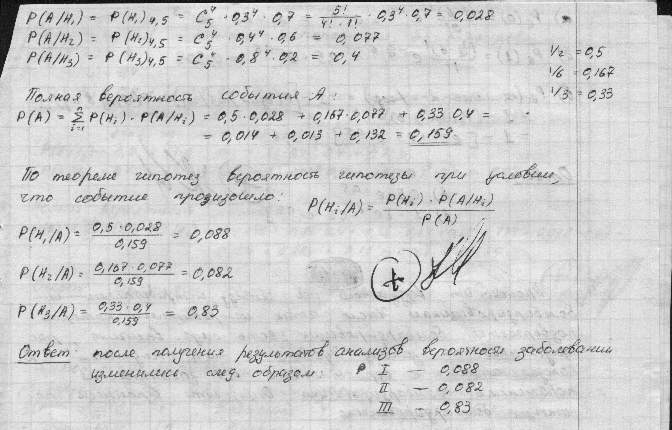 P(A/H₁) = P(H₁)₄,₅ = C₅⁴ · 0,3⁴ · 0,7 = 5!/(4! · 1!) · 0,3⁴ · 0,7 = 0,028
P(A/H₂) = P(H₂)₄,₅ = C₅⁴ · 0,4⁴ · 0,6 = 0,077
P(A/H₃) = P(H₃)₄,₅ = C₅⁴ · 0,8⁴ · 0,2 = 0,4
1/2 = 0,5
1/6 = 0,167
1/3 = 0,33
Полная вероятность события A:
P(A) = Σ P(Hᵢ) · P(A/Hᵢ) = 0,5 · 0,028 + 0,167 · 0,077 + 0,33 · 0,4 =
= 0,014 + 0,013 + 0,132 = 0,159
По теореме гипотез вероятность гипотезы при условии,
что событие произошло: P(Hᵢ/A) = P(Hᵢ) · P(A/Hᵢ) / P(A)
P(H₁/A) = 0,5 · 0,028 / 0,159 = 0,088
P(H₂/A) = 0,167 · 0,077 / 0,159 = 0,082
P(H₃/A) = 0,33 · 0,4 / 0,159 = 0,83
+
Ответ: после получения результатов анализов вероятности заболевании
изменились след. образом: I — 0,088
II — 0,082
III — 0,83